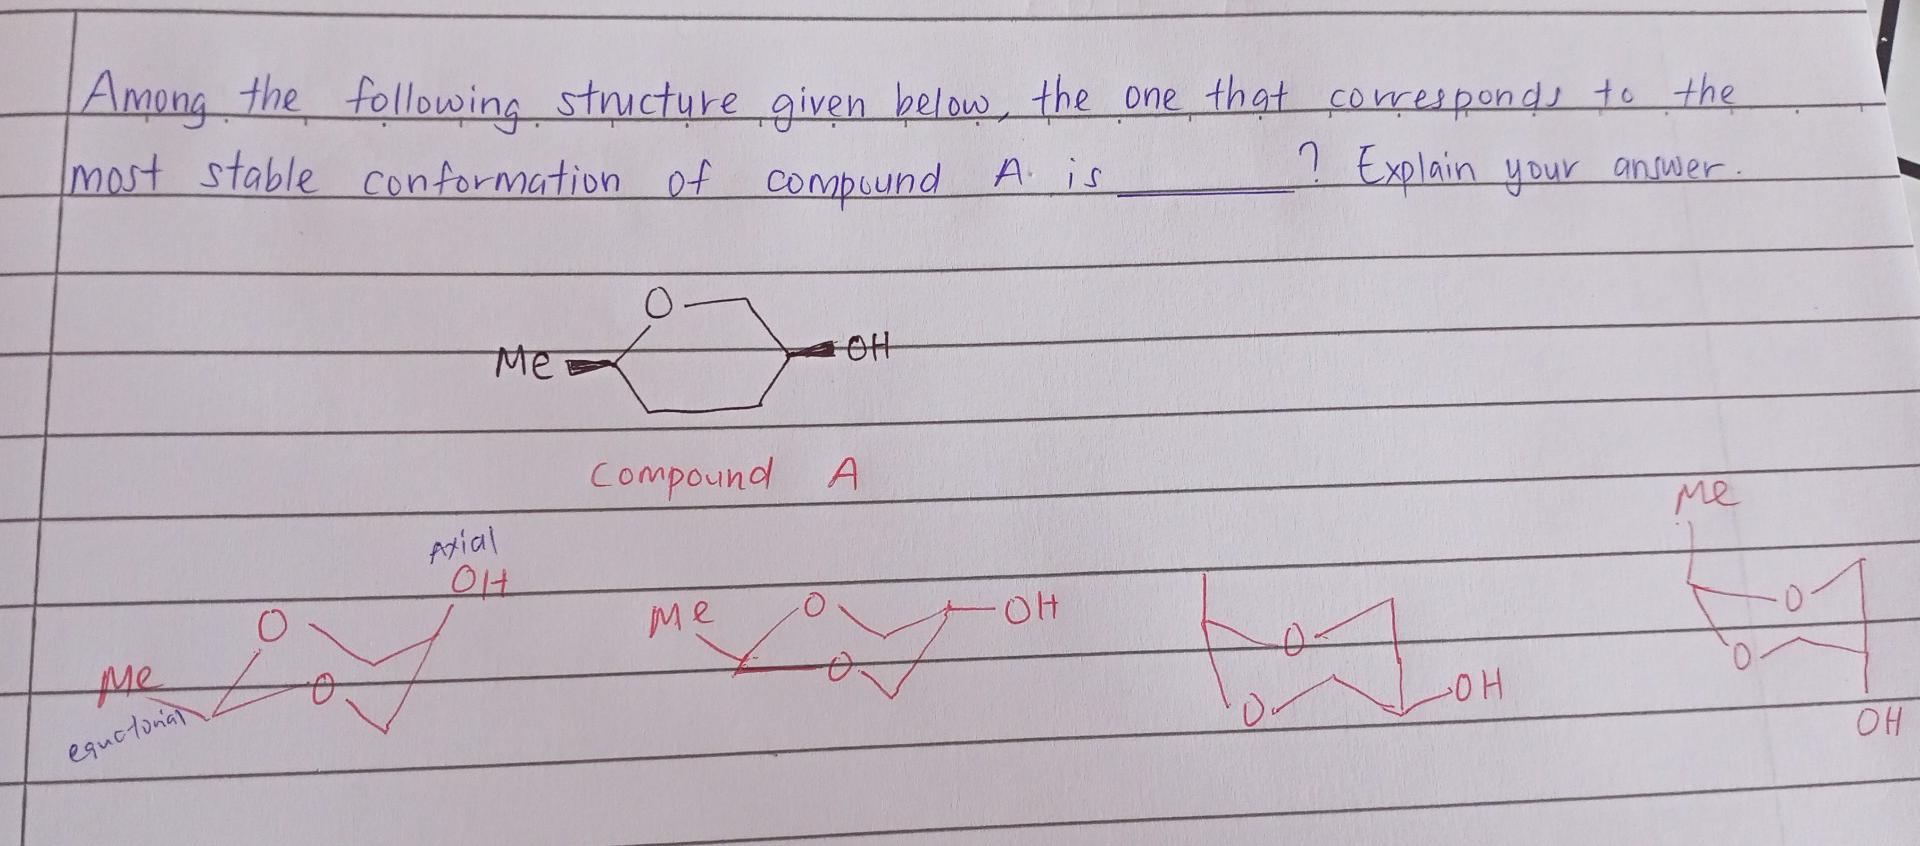 Among the following structure given below, the one that corresponds to the
most stable conformation of compound A is ________ ? Explain your answer.
O
Me OH
Compound A
Me
Axial
OH
O
Me O
equctorial
Me O OH
O
O
O OH
O
O
OH